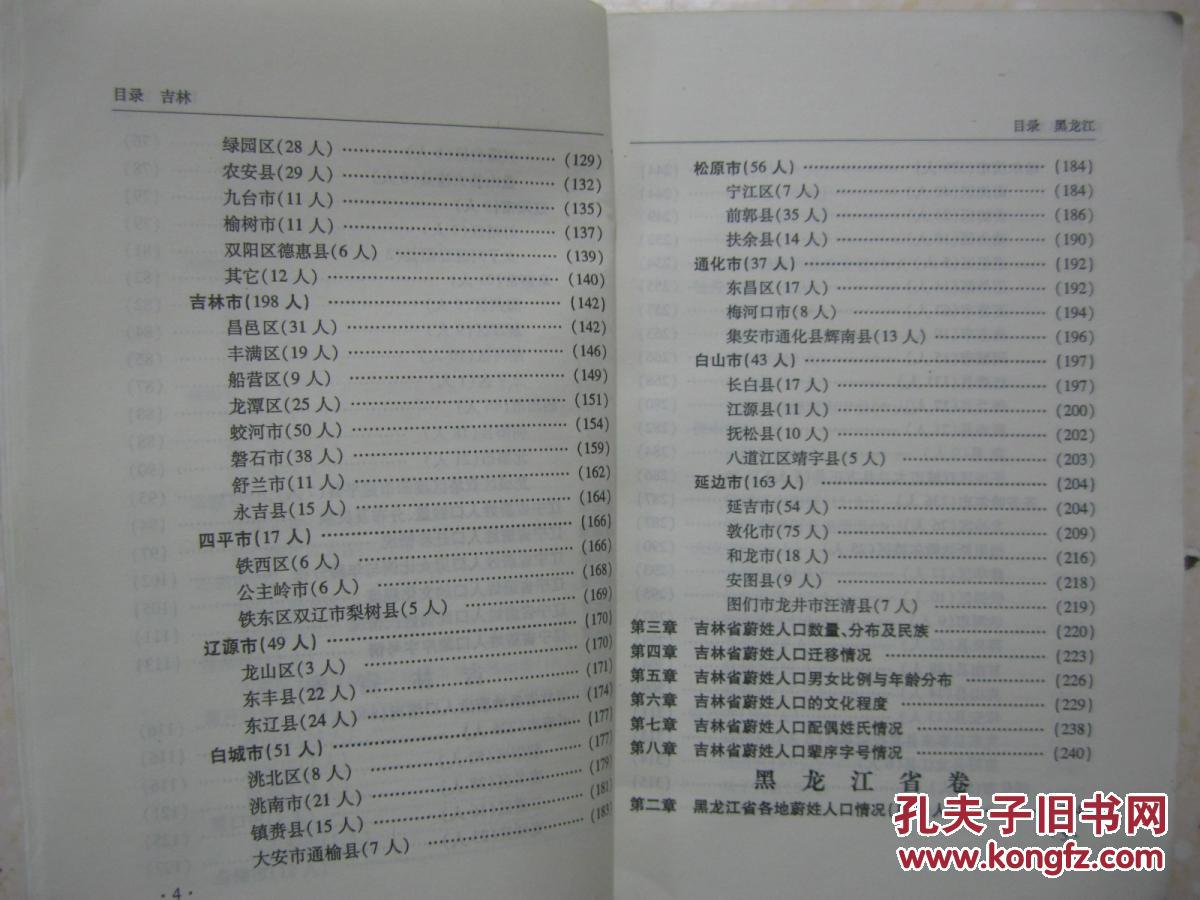 目录 吉林
绿园区(28 人) (129)
农安县(29 人) (132)
九台市(11 人) (135)
榆树市(11 人) (137)
双阳区德惠县(6 人) (139)
其它(12 人) (140)
吉林市(198 人) (142)
昌邑区(31 人) (142)
丰满区(19 人) (146)
船营区(9 人) (149)
龙潭区(25 人) (151)
蛟河市(50 人) (154)
磐石市(38 人) (159)
舒兰市(11 人) (162)
永吉县(15 人) (164)
四平市(17 人) (166)
铁西区(6 人) (166)
公主岭市(6 人) (168)
铁东区双辽市梨树县(5 人) (169)
辽源市(49 人) (170)
龙山区(3 人) (170)
东丰县(22 人) (171)
东辽县(24 人) (174)
白城市(51 人) (177)
洮北区(8 人) (177)
洮南市(21 人) (179)
镇赉县(15 人) (181)
大安市通榆县(7 人) (183)
· 4 ·
目录 黑龙江
松原市(56 人) (184)
宁江区(7 人) (184)
前郭县(35 人) (186)
扶余县(14 人) (190)
通化市(37 人) (192)
东昌区(17 人) (192)
梅河口市(8 人) (194)
集安市通化县辉南县(13 人) (196)
白山市(43 人) (197)
长白县(17 人) (197)
江源县(11 人) (200)
抚松县(10 人) (202)
八道江区靖宇县(5 人) (203)
延边市(163 人) (204)
延吉市(54 人) (204)
敦化市(75 人) (209)
和龙市(18 人) (216)
安图县(9 人) (218)
图们市龙井市汪清县(7 人) (219)
第三章 吉林省蔚姓人口数量、分布及民族 (220)
第四章 吉林省蔚姓人口迁移情况 (223)
第五章 吉林省蔚姓人口男女比例与年龄分布 (226)
第六章 吉林省蔚姓人口的文化程度 (229)
第七章 吉林省蔚姓人口配偶姓氏情况 (238)
第八章 吉林省蔚姓人口辈序字号情况 (240)
黑龙江省卷
第二章 黑龙江省各地蔚姓人口情况(
孔夫子旧书网
www.kongfz.com